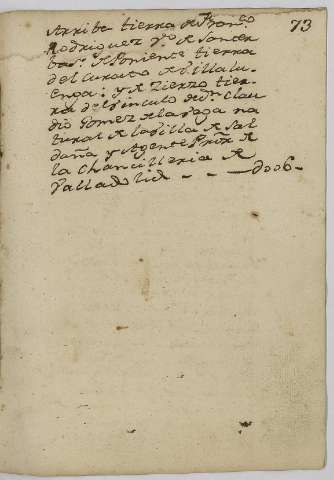 73
Arriba tierra de Franco
Rodriguez Vo. de Santer
bas. de Poniente tierra
del Curato de Villalu
enga: y de Zierzo tier-
ra del Vinculo de Dn. Clau
dio Gomez de la Vega na
tural de la Villa de Sal
daña y Agente de
la Chancilleria de
Valladolid - - - 006-